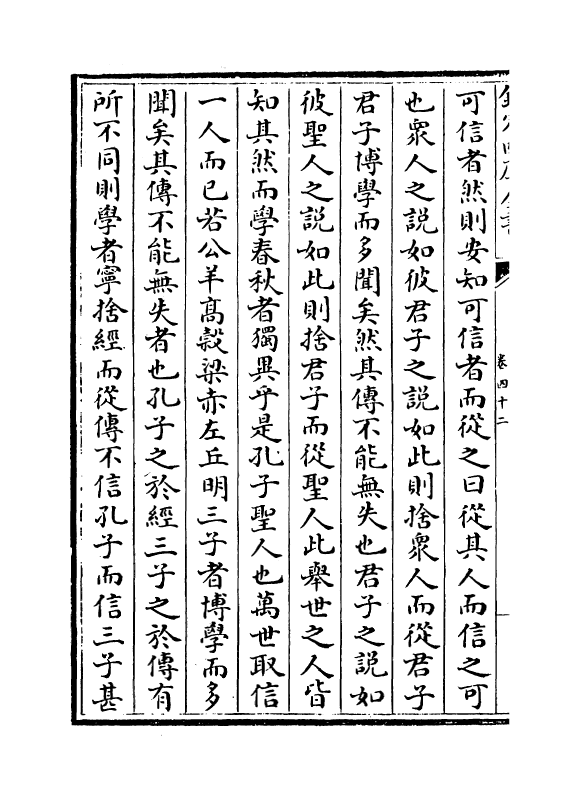 可信者然則安知可信者而從之曰從其人而信之可
也衆人之説如彼君子之説如此則捨衆人而從君子
君子博學而多聞矣然其傳不能無失也君子之説如
彼聖人之説如此則捨君子而從聖人此舉世之人皆
知其然而學春秋者獨異乎是孔子聖人也萬世取信
一人而已若公羊髙榖梁赤左丘明三子者博學而多
聞矣其傳不能無失者也孔子之於經三子之於傳有
所不同則學者寧捨經而從傳不信孔子而信三子甚
卷四十二